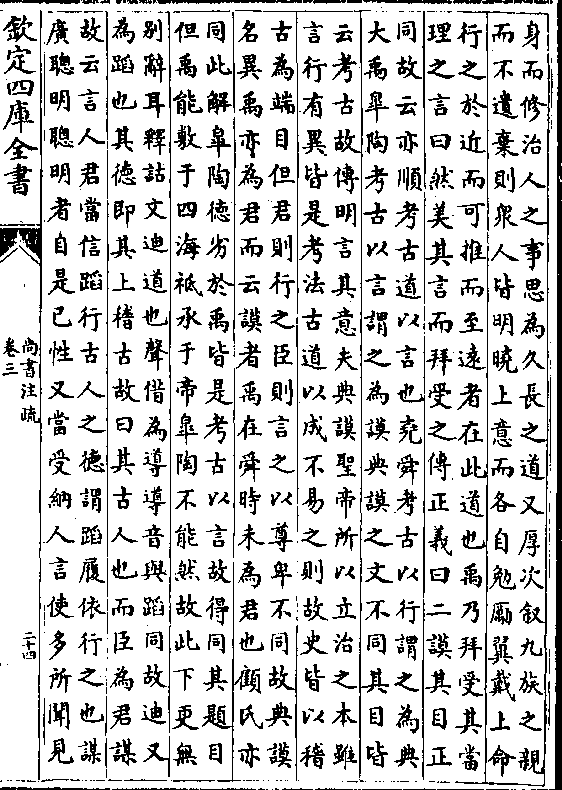 身而修治人之事思為久長之道又厚次叙九族之親
而不遺棄則衆人皆明曉上意而各自勉勵翼戴上命
行之於近而可推而至遠者在此道也禹乃拜受其當
理之言曰然美其言而拜受之傳正義曰二謨其目正
同故云亦順考古道以言也堯舜考古以行謂之為典
大禹臯陶考古以言謂之為謨典謨之文不同其目皆
云考古故傳明言其意夫典謨聖帝所以立治之本雖
言行有異皆是考法古道以成不易之則故史皆以稽
古為端目但君則行之臣則言之以尊卑不同故典謨
名異禹亦為君而云謨者禹在舜時未為君也顧氏亦
同此解臯陶德劣於禹皆是考古以言故得同其題目
但禹能敷于四海祗承于帝臯陶不能然故此下更無
别辭耳釋詁文迪道也聲借為導導音與蹈同故迪又
為蹈也其德即其上稽古故曰其古人也而臣為君謀
故云言人君當信蹈行古人之德謂蹈履依行之也謀
廣聰明聰明者自是已性又當受納人言使多所聞見
欽定四庫全書
尚書注疏
卷三
二十四